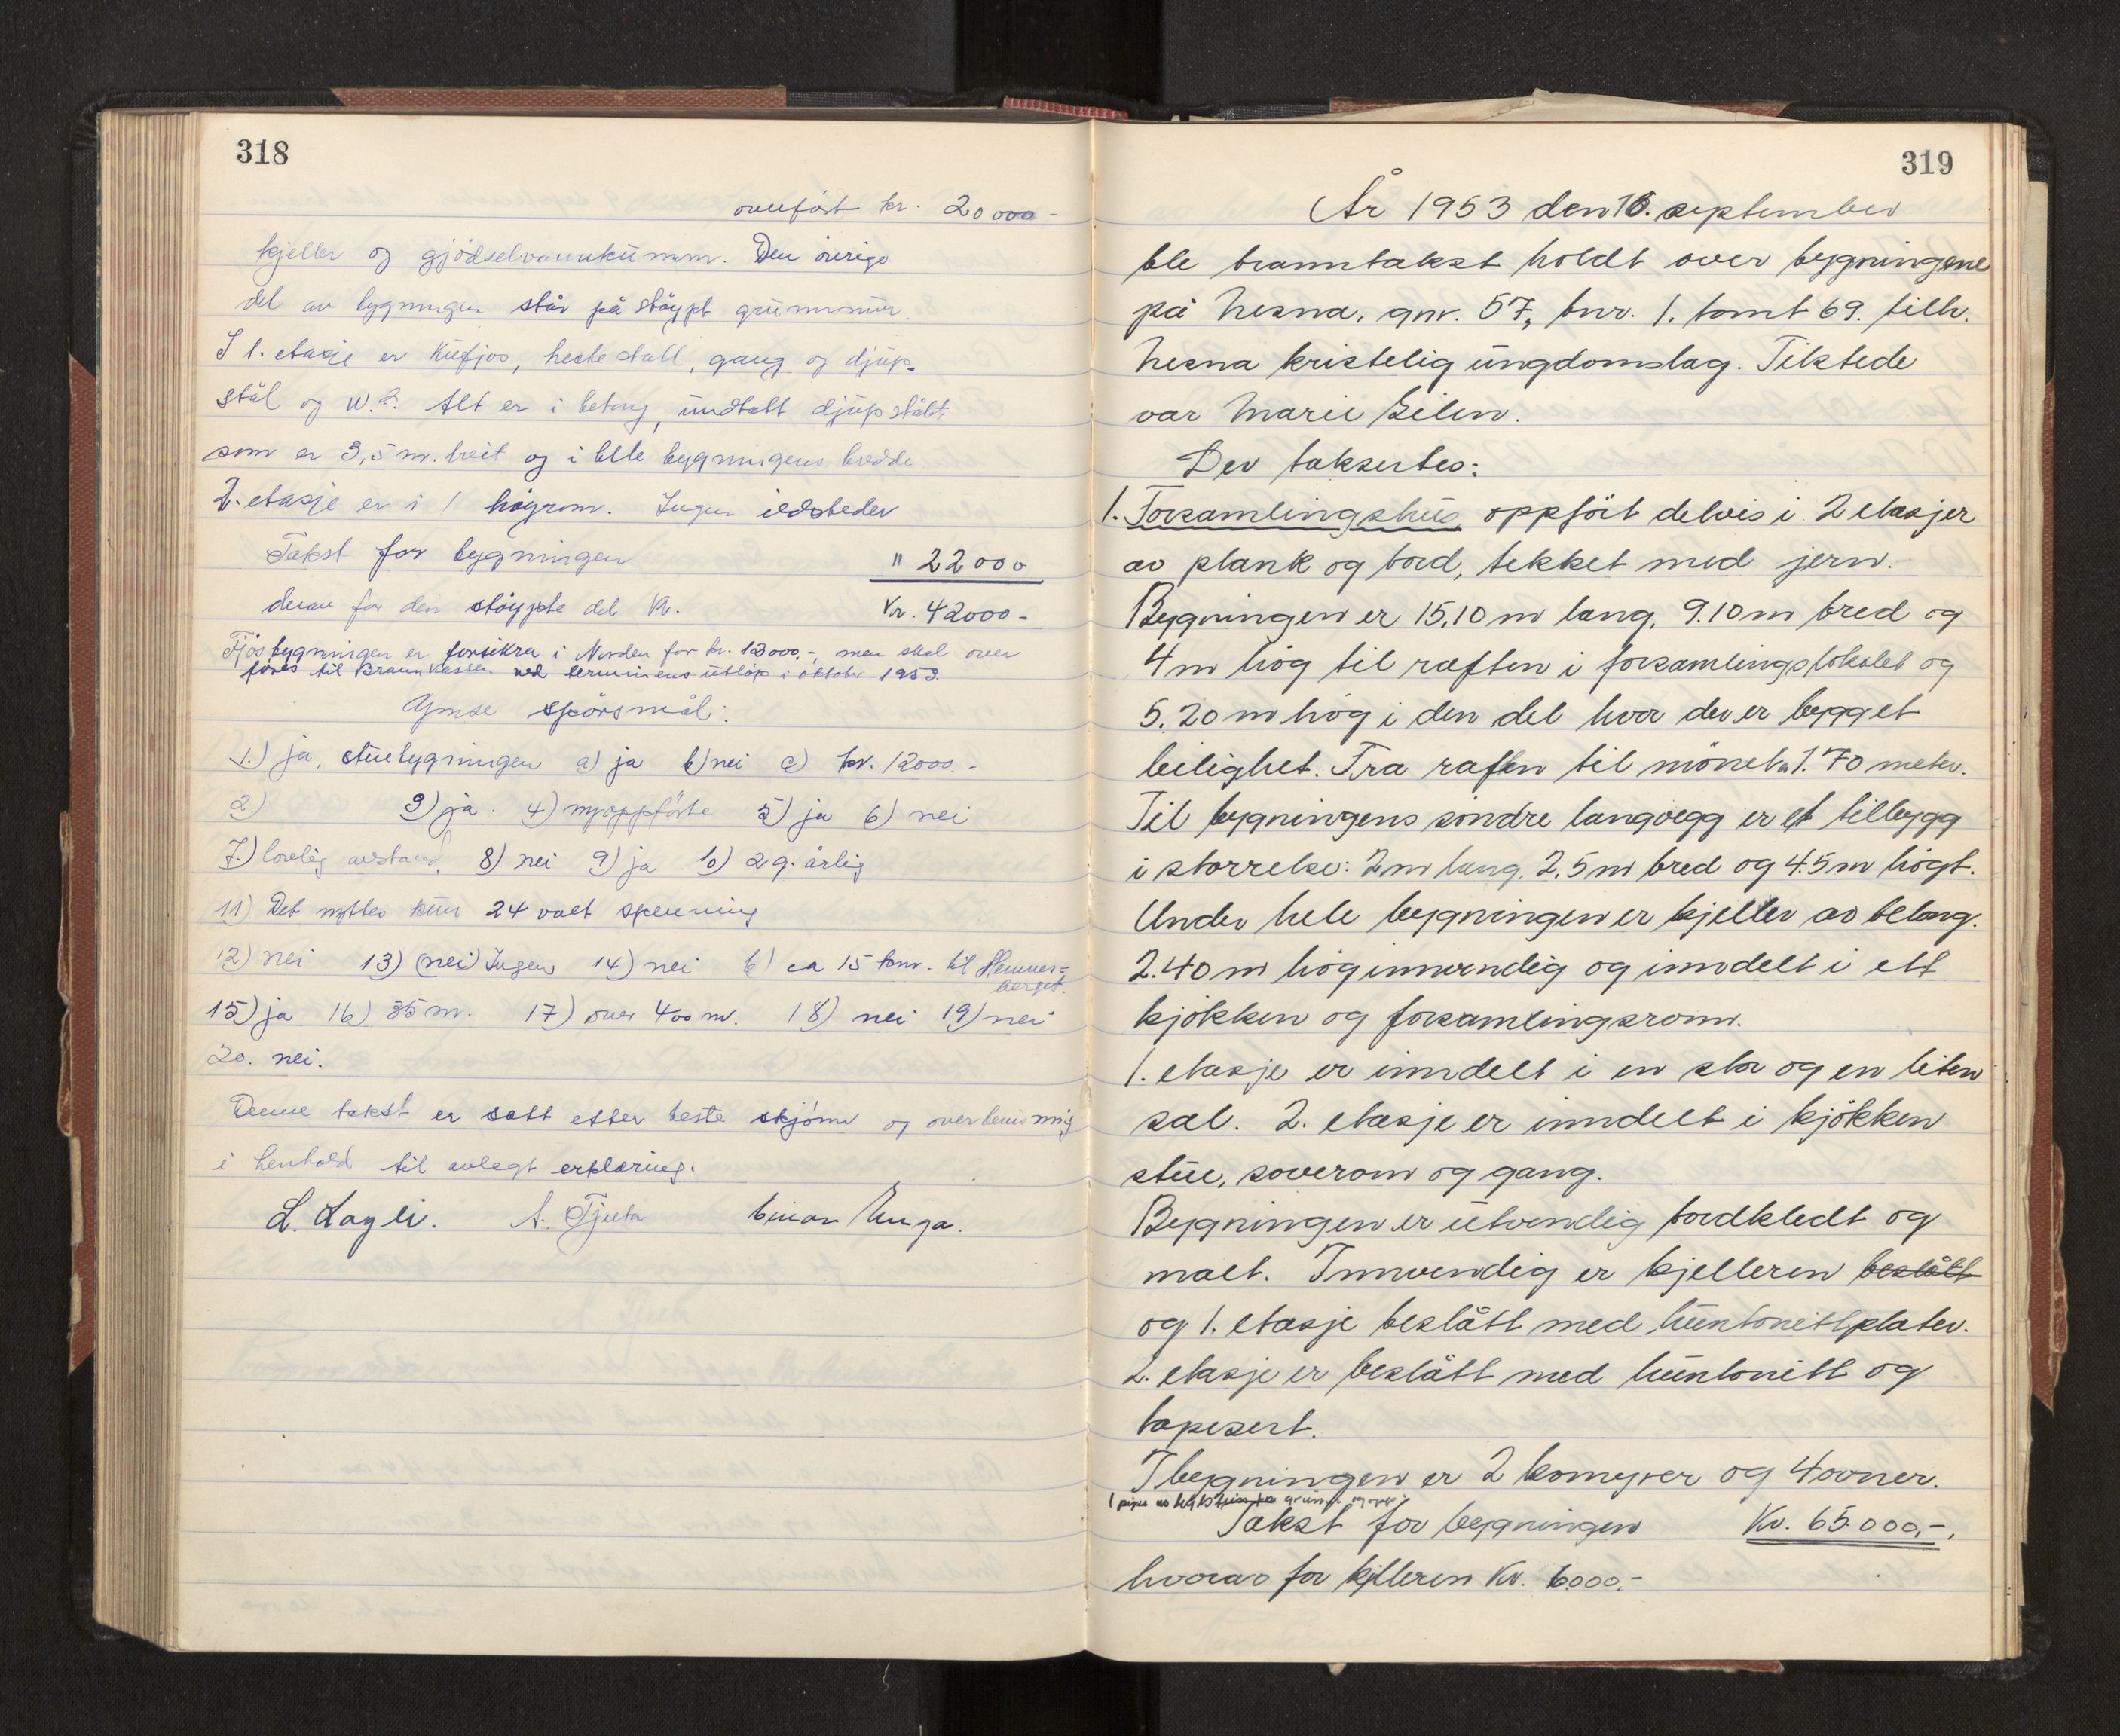 318
overført kr. 20000-
kjeller og gjødselvannkum. Den øvrige
del av bygningen står på støypt grunnmur.
I 1. etasje er kufjos, hestestall, gang og djup-
stål og W.C. Alt er i betong, undtatt djupstålet
som er 3,5 m. breit og i hele bygningens bredde
2. etasje er i 1 høgrom. Ingen ildsteder
Takst for bygningen " 22000
derav for den støypte del Kr. Kr. 42000-
Fjøsbygningen er forsikra i Norden for kr. 12000.-, men skal over
føres til Brannkassen ved terminens utløp i oktober 1953.
Ymse spørsmål:
1.) ja, stuebygningen a) ja b) nei c) kr. 12000.-
2) 3) ja. 4) nyoppførte 5) ja 6) nei
7.) lovlig avstand. 8) nei 9) ja 10) 2 g. årlig
11) Det nyttes kun 24 volt spenning
12) nei 13) (nei) Ingen 14) nei b) ca 15 km. til Hemnes-
berget.
15) ja 16) 35 m. 17) over 400 m. 18) nei 19) nei
20. nei.
Denne takst er satt etter beste skjønn og overbevisning
i henhold til avlagt erklæring.
L. Lagli. A. Tjuta Einar Unga.
319
År 1953 den 16. september
ble branntakst holdt over bygningene
på Nesna, gnr. 57, bnr. 1. tomt 69. tilh.
Nesna kristelig ungdomslag. Tilstede
var Marie Zilen.
Der taksertes:
1. Forsamlingshus oppført delvis i 2 etasjer
av plank og bord, tekket med jern.
Bygningen er 15,10 m lang, 9.10 m bred og
4 m høg til raften i forsamlingslokalet og
5.20 m høg i den del hvor der er bygget
leilighet. Fra raften til mønet er 1.70 meter.
Til bygningens søndre langvegg er et tilbygg
i størrelse: 2 m lang, 2,5 m bred og 4.5 m høgt.
Under hele bygningen er kjeller av betong.
2.40 m høg innvendig og inndelt i ett
kjøkken og forsamlingsrom.
1. etasje er inndelt i en stor og en liten
sal. 2. etasje er inndelt i kjøkken
stue, soverom og gang.
Bygningen er utvendig bordkledt og
malt. Innvendig er kjelleren beslått
og 1. etasje beslått med huntonittplater.
2. etasje er beslått med huntonitt og
tapesert.
I bygningen er 2 komyrer og 4 ovner.
1 pipe av teglstein fra grunnen og opp
Takst for bygningen Kr. 65.000,-.
hvorav for kjelleren Kr. 6000,-